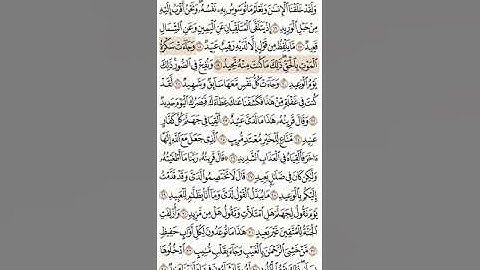 وَلَقَدْ خَلَقْنَا ٱلْإِنسَٰنَ وَنَعْلَمُ مَا تُوَسْوِسُ بِهِۦ نَفْسُهُۥ ۖ وَنَحْنُ أَقْرَبُ إِلَيْهِ
مِنْ حَبْلِ ٱلْوَرِيدِ ١٦ إِذْ يَتَلَقَّى ٱلْمُتَلَقِّيَانِ عَنِ ٱلْيَمِينِ وَعَنِ ٱلشِّمَالِ
قَعِيدٌ ١٧ مَّا يَلْفِظُ مِن قَوْلٍ إِلَّا لَدَيْهِ رَقِيبٌ عَتِيدٌ ١٨ وَجَآءَتْ سَكْرَةُ
ٱلْمَوْتِ بِٱلْحَقِّ ۖ ذَٰلِكَ مَا كُنتَ مِنْهُ تَحِيدُ ١٩ وَنُفِخَ فِى ٱلصُّورِ ۚ ذَٰلِكَ
يَوْمُ ٱلْوَعِيدِ ٢٠ وَجَآءَتْ كُلُّ نَفْسٍ مَّعَهَا سَآئِقٌ وَشَهِيدٌ ٢١ لَّقَدْ
كُنتَ فِى غَفْلَةٍ مِّنْ هَٰذَا فَكَشَفْنَا عَنكَ غِطَآءَكَ فَبَصَرُكَ ٱلْيَوْمَ حَدِيدٌ
٢٢ وَقَالَ قَرِينُهُۥ هَٰذَا مَا لَدَىَّ عَتِيدٌ ٢٣ أَلْقِيَا فِى جَهَنَّمَ كُلَّ كَفَّارٍ
عَنِيدٍ ٢٤ مَّنَّاعٍ لِّلْخَيْرِ مُعْتَدٍ مُّرِيبٍ ٢٥ ٱلَّذِى جَعَلَ مَعَ ٱللَّهِ إِلَٰهًا
ءَاخَرَ فَأَلْقِيَاهُ فِى ٱلْعَذَابِ ٱلشَّدِيدِ ٢٦ قَالَ قَرِينُهُۥ رَبَّنَا مَآ أَطْغَيْتُهُۥ
وَلَٰكِن كَانَ فِى ضَلَٰلٍۭ بَعِيدٍ ٢٧ قَالَ لَا تَخْتَصِمُوا۟ لَدَىَّ وَقَدْ قَدَّمْتُ
إِلَيْكُم بِٱلْوَعِيدِ ٢٨ مَا يُبَدَّلُ ٱلْقَوْلُ لَدَىَّ وَمَآ أَنَا۠ بِظَلَّٰمٍ لِّلْعَبِيدِ ٢٩
يَوْمَ نَقُولُ لِجَهَنَّمَ هَلِ ٱمْتَلَأْتِ وَتَقُولُ هَلْ مِن مَّزِيدٍ ٣٠ وَأُزْلِفَتِ
ٱلْجَنَّةُ لِلْمُتَّقِينَ غَيْرَ بَعِيدٍ ٣١ هَٰذَا مَا تُوعَدُونَ لِكُلِّ أَوَّابٍ حَفِيظٍ
٣٢ مَّنْ خَشِىَ ٱلرَّحْمَٰنَ بِٱلْغَيْبِ وَجَآءَ بِقَلْبٍ مُّنِيبٍ ٣٣ ٱدْخُلُوهَا